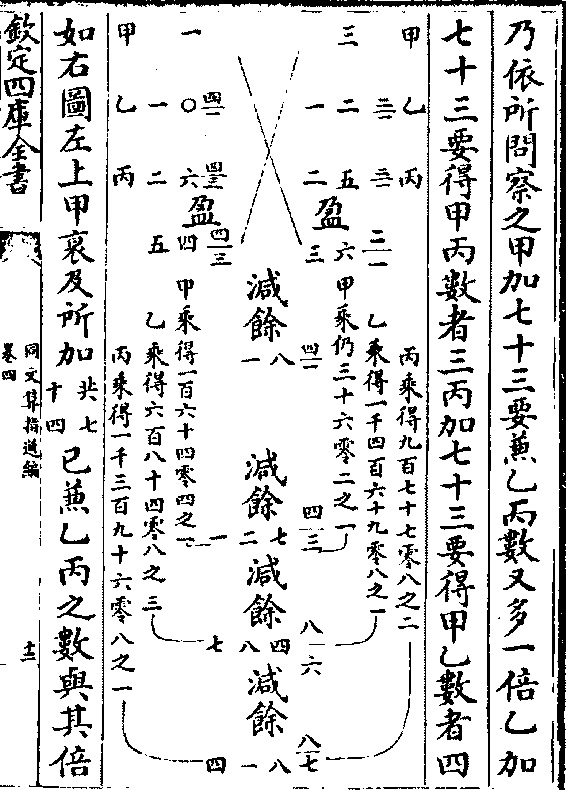 乃依所問察之甲加七十三要兼乙丙數又多一倍乙加
七十三要得甲丙數者三丙加七十三要得甲乙數者四
甲 乙 丙
丙乘得九百七十七零八之二
乙乘得一千四百六十九零八之一
三 二 五 六
二一
甲乘仍三十六零二之一
一 二 盈 三
減餘 一八 四一
減餘 一二七 四三
減餘 七八四 八六
減餘 四一八 八七
盈
一 〇 六 四
四三
甲乘得一百六十四零四之一
一 二 五
乙乘得六百八十四零八之三
甲 乙 丙
丙乘得一千三百九十六零八之一
如右圖左上甲衰及所加共七十四已兼乙丙之數與其倍
欽定四庫全書
同文算指通編
卷四
十二